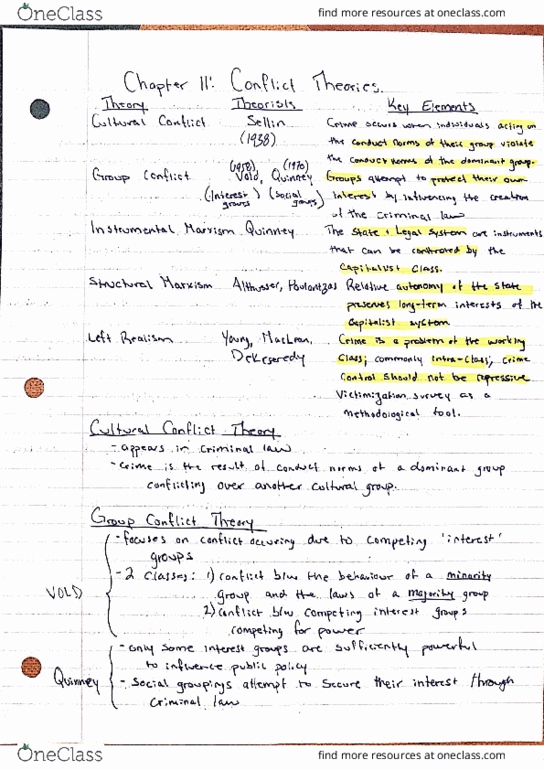 OneClass
find more resources at oneclass.com
Chapter 11: Conflict Theories.
Theory Theorists Key Elements
Cultural Conflict Sellin (1938) Crime occurs when individuals acting on
the conduct norms of their group violate
the conduct norms of the dominant group.
Group Conflict (1958) Vold, (1970) Quinney Groups attempt to protect their own
(interest groups) (social groups) interest by influencing the creation
of the criminal law
Instrumental Marxism Quinney The state + Legal System are instruments
that can be controlled by the
Capitalist Class.
Structural Marxism Althusser, Poulantzas Relative autonomy of the state
preserves long-term interests of the
Capitalist system
Left Realism Young, MacLean, Crime is a problem of the working
DeKeseredy Class; commonly intra-Class, Crime
Control should not be repressive
Victimization survey as a
methodological tool.
Cultural Conflict Theory
- appears in criminal law
- crime is the result of conduct norms of a dominant group
conflicting over another cultural group.
Group Conflict Theory
- focuses on conflict occuring due to competing 'interest'
groups
- 2 Classes: 1) conflict b/w the behaviour of a minority
VOLD group and the laws of a majority group
2) conflict b/w competing interest groups
competing for power
- only some interest groups are sufficiently powerful
to influence public policy
Quinney - Social groupings attempt to secure their interest through
Criminal law
OneClass
find more resources at oneclass.com